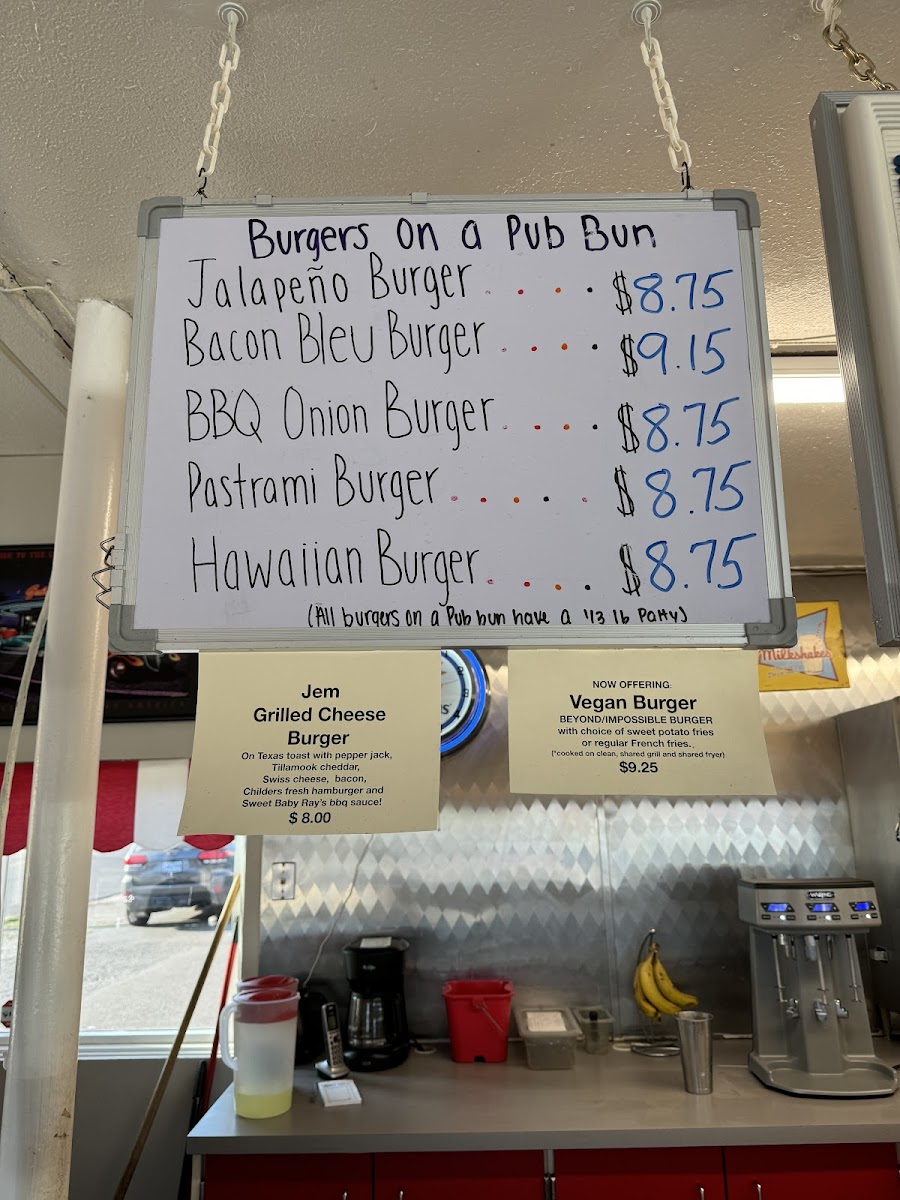 Burgers On a Pub Bun
Jalapeño Burger . . . . $8.75
Bacon Bleu Burger . . . . $9.15
BBQ Onion Burger . . . . $8.75
Pastrami Burger . . . . . $8.75
Hawaiian Burger . . . . $8.75
(All burgers on a Pub bun have a 1/3 lb Patty)
Jem
Grilled Cheese
Burger
On Texas toast with pepper jack,
Tillamook cheddar,
Swiss cheese, bacon,
Childers fresh hamburger and
Sweet Baby Ray's bbq sauce!
$ 8.00
NOW OFFERING:
Vegan Burger
BEYOND/IMPOSSIBLE BURGER
with choice of sweet potato fries
or regular French fries.
(*cooked on clean, shared grill and shared fryer)
$9.25
Milkshakes